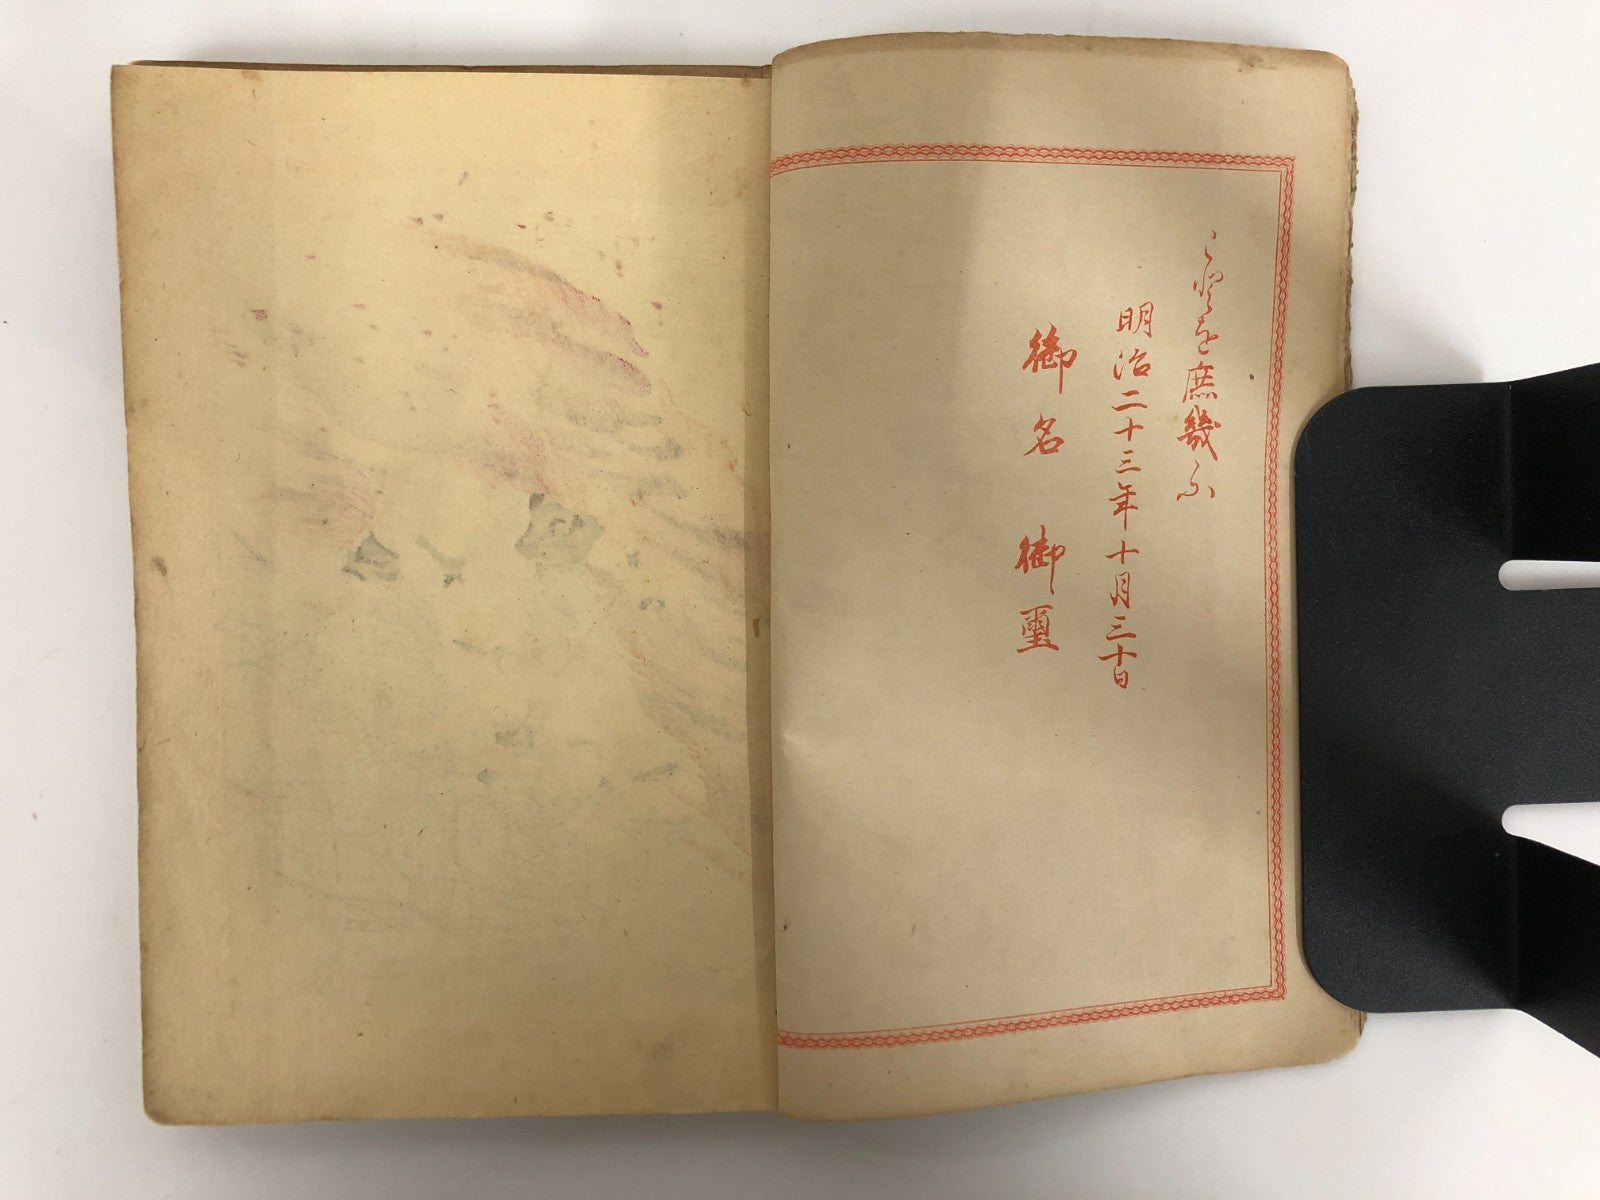 こと を庶幾ふ
明治二十三年十月三十日
御名 御璽